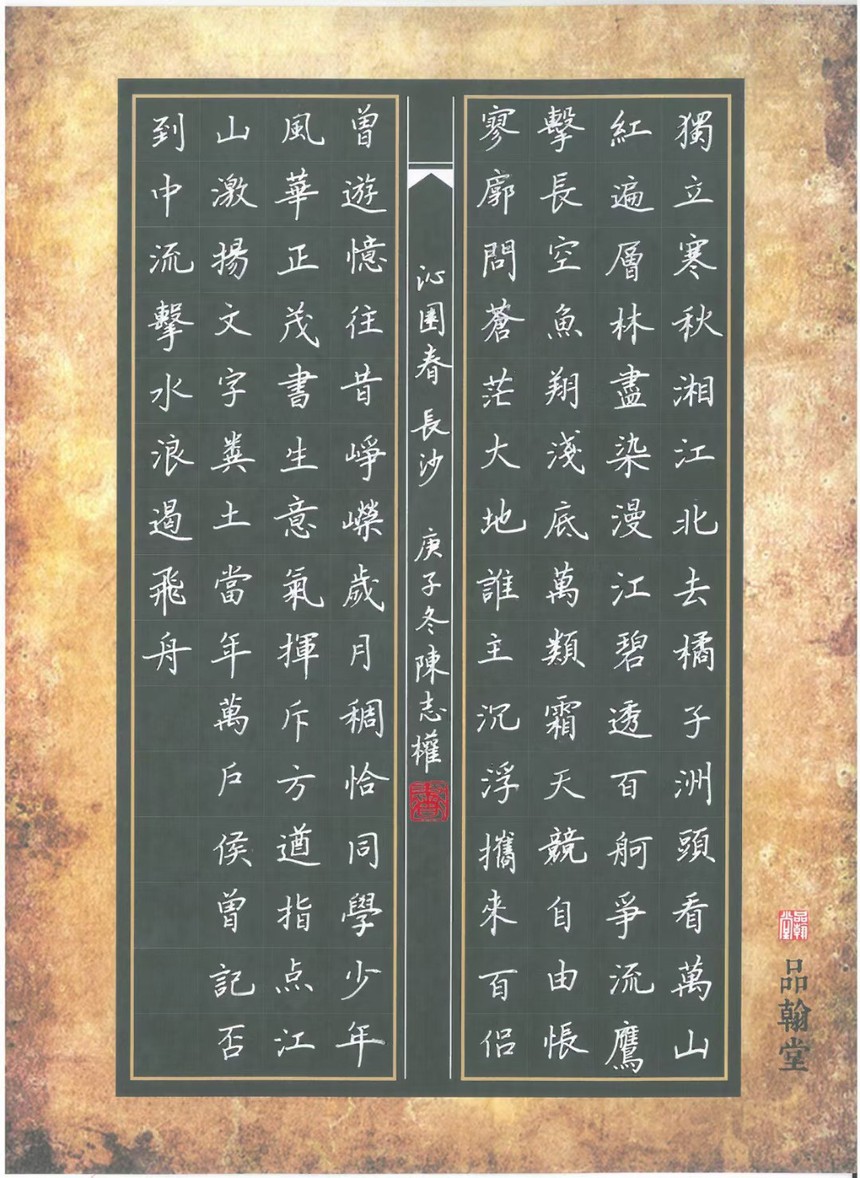 獨立寒秋湘江北去橘子洲頭看萬山
紅遍層林盡染漫江碧透百舸爭流鷹
擊長空魚翔淺底萬類霜天競自由悵
寥廓問蒼茫大地誰主沉浮攜來百侶
沁園春 長沙 庚子冬陳志權
曾遊憶往昔崢嶸歲月稠恰同學少年
風華正茂書生意氣揮斥方遒指点江
山激揚文字糞土當年萬戶侯曾記否
到中流擊水浪遏飛舟
品翰堂
品翰堂